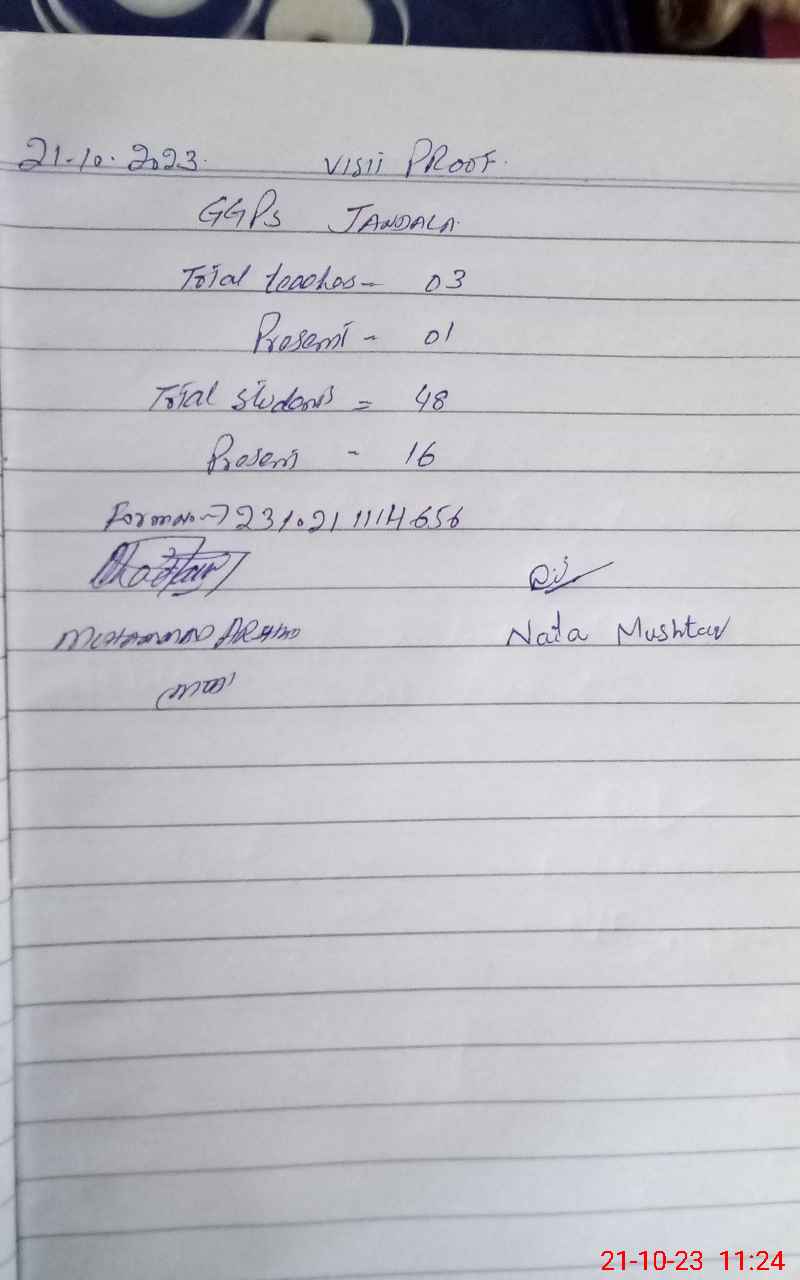 21-10-2023. VISIT PROOF.
GGPS JANDALA.
Total teachers - 03
Present - 01
Total students = 48
Present - 16
Form no -> 2310211114656
MUHAMMAD ARSHAD
Naila Mushtaq
21-10-23 11:24